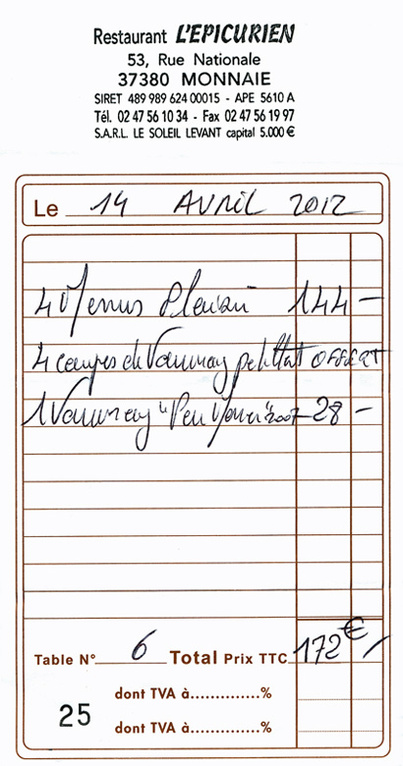 Restaurant L'EPICURIEN
53, Rue Nationale
37380 MONNAIE
SIRET 489 989 624 00015 - APE 5610 A
Tél. 02 47 56 10 34 - Fax 02 47 56 19 97
S.A.R.L. LE SOLEIL LEVANT capital 5.000 €
Le 14 AVRIL 2012
4 Menus Plaisir 144 -
4 coupes de Vouvray petillant OFFERT
1 Vouvray " 2007 28 -
Table N° 6 Total Prix TTC 172 €
dont TVA à..............%
25
dont TVA à..............%